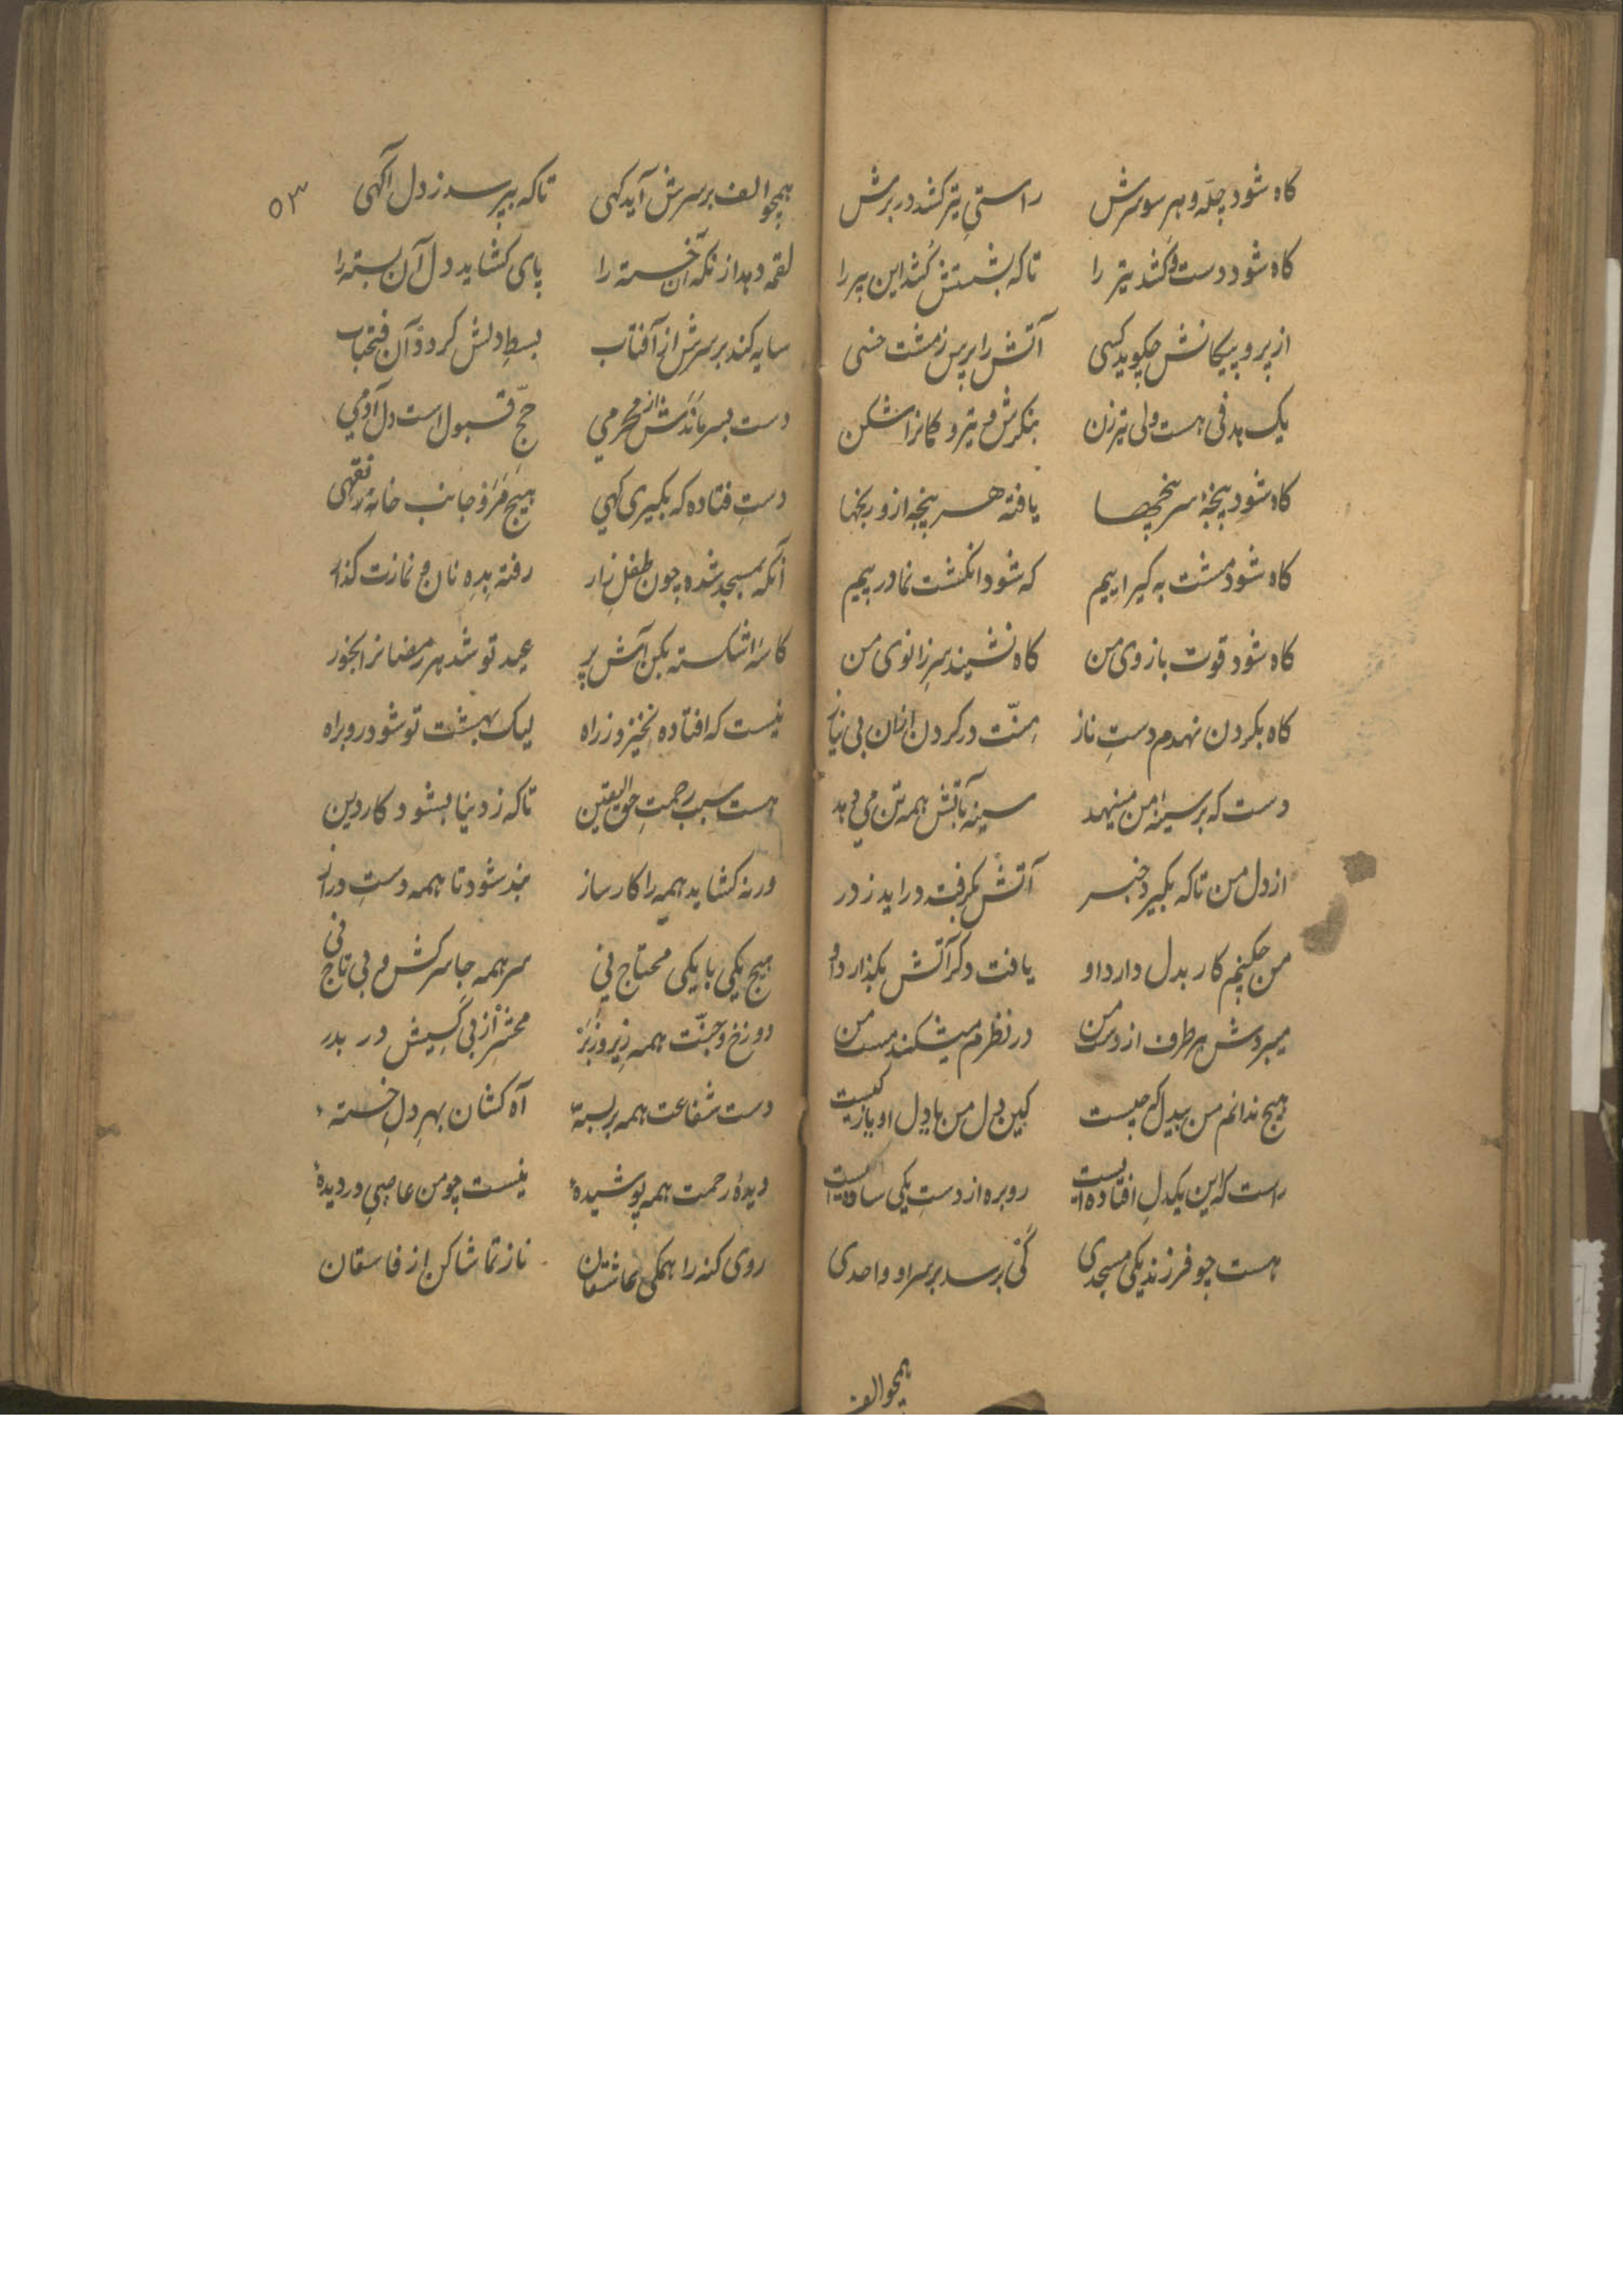 کاه شود چله و هر سو سرش راستی تیر کشد در برش
کاه شود دست و کشد تیر را تا که بشستش کشد این پیر را
از پر و پیکانش چکوید کهی آتش را پرس ز مشت خسی
یک هدفی هست ولی تیرزن بنکرش و تیر و کمانرا شکن
کاه شود پنجهٔ سرپنجها یافته هر پنجه ازو رنجها
کاه شود مشت به کیراییم که شود انکشت نما در پیم
کاه شود قوت بازوی من کاه نشیند سر زانوی من
کاه بکردن نهدم دست ناز منّت در کردن ازان بی نیاز
دست که بر سینهٔ من مینهد سینه بآتش همه تن می دهد
از دل من تا که بکیرد خبر آتش بکرفته دراید ز در
من چکنم کار بدل دارد او یافت دکر آتش بکذارد او
میبردش هر طرف از دست من در نظرم میشکند مست من
هیچ ندانم من بیدل که چیست کین دل من با دل او باز کیست
راست که این یکدل افتاده ایست روبره از دست یکی ساده ایست
هست چو فرزند یکی مسجدی کی برسد بر سر او واحدی
همچو الف
۵۳
همچو الف بر سرش آید کهی تا که بپرسد ز دل آکهی
لقمه دهد از نکه آن خسته را پای کشاید دل آن بسته را
سایه کند بر سرش از آفتاب بسط دلش کردد و آن فتحباب
دست بسر ماندش از محرمی حجّ قبول است دل آدمی
دست فتاده که بکیری کهی هیچ مرو جانب خانه تهی
آنکه بمسجد شده چون طفل زار رفته بده نان و نمازت کذار
کاسهٔ اشکسته بکن آش پر عید تو شد بهر رمضانرا بخور
نیست که افتاده نخیزد ز راه لیک بهشت تو شود روبراه
هست سبب رحمت حق الیقین تا که ز دنیا بشود کار دین
ورنه کشاید همه را کارساز بند شود تا همه دست دراز
هیچ یکی با یکی محتاج نی سر همه جا سرکش و بی تاج نی
دوزخ و جنّت همه زیر و زبر محشر از بی کسیش در بدر
دست شفاعت همه بر بستهٔ آه کشان بهر دل خستهٔ
دیدهٔ رحمت همه پوشیدهٔ نیست چو من عاصی دردیدهٔ
روی کنه را همکی عاشقان ناز تماشا کن از فاسقان